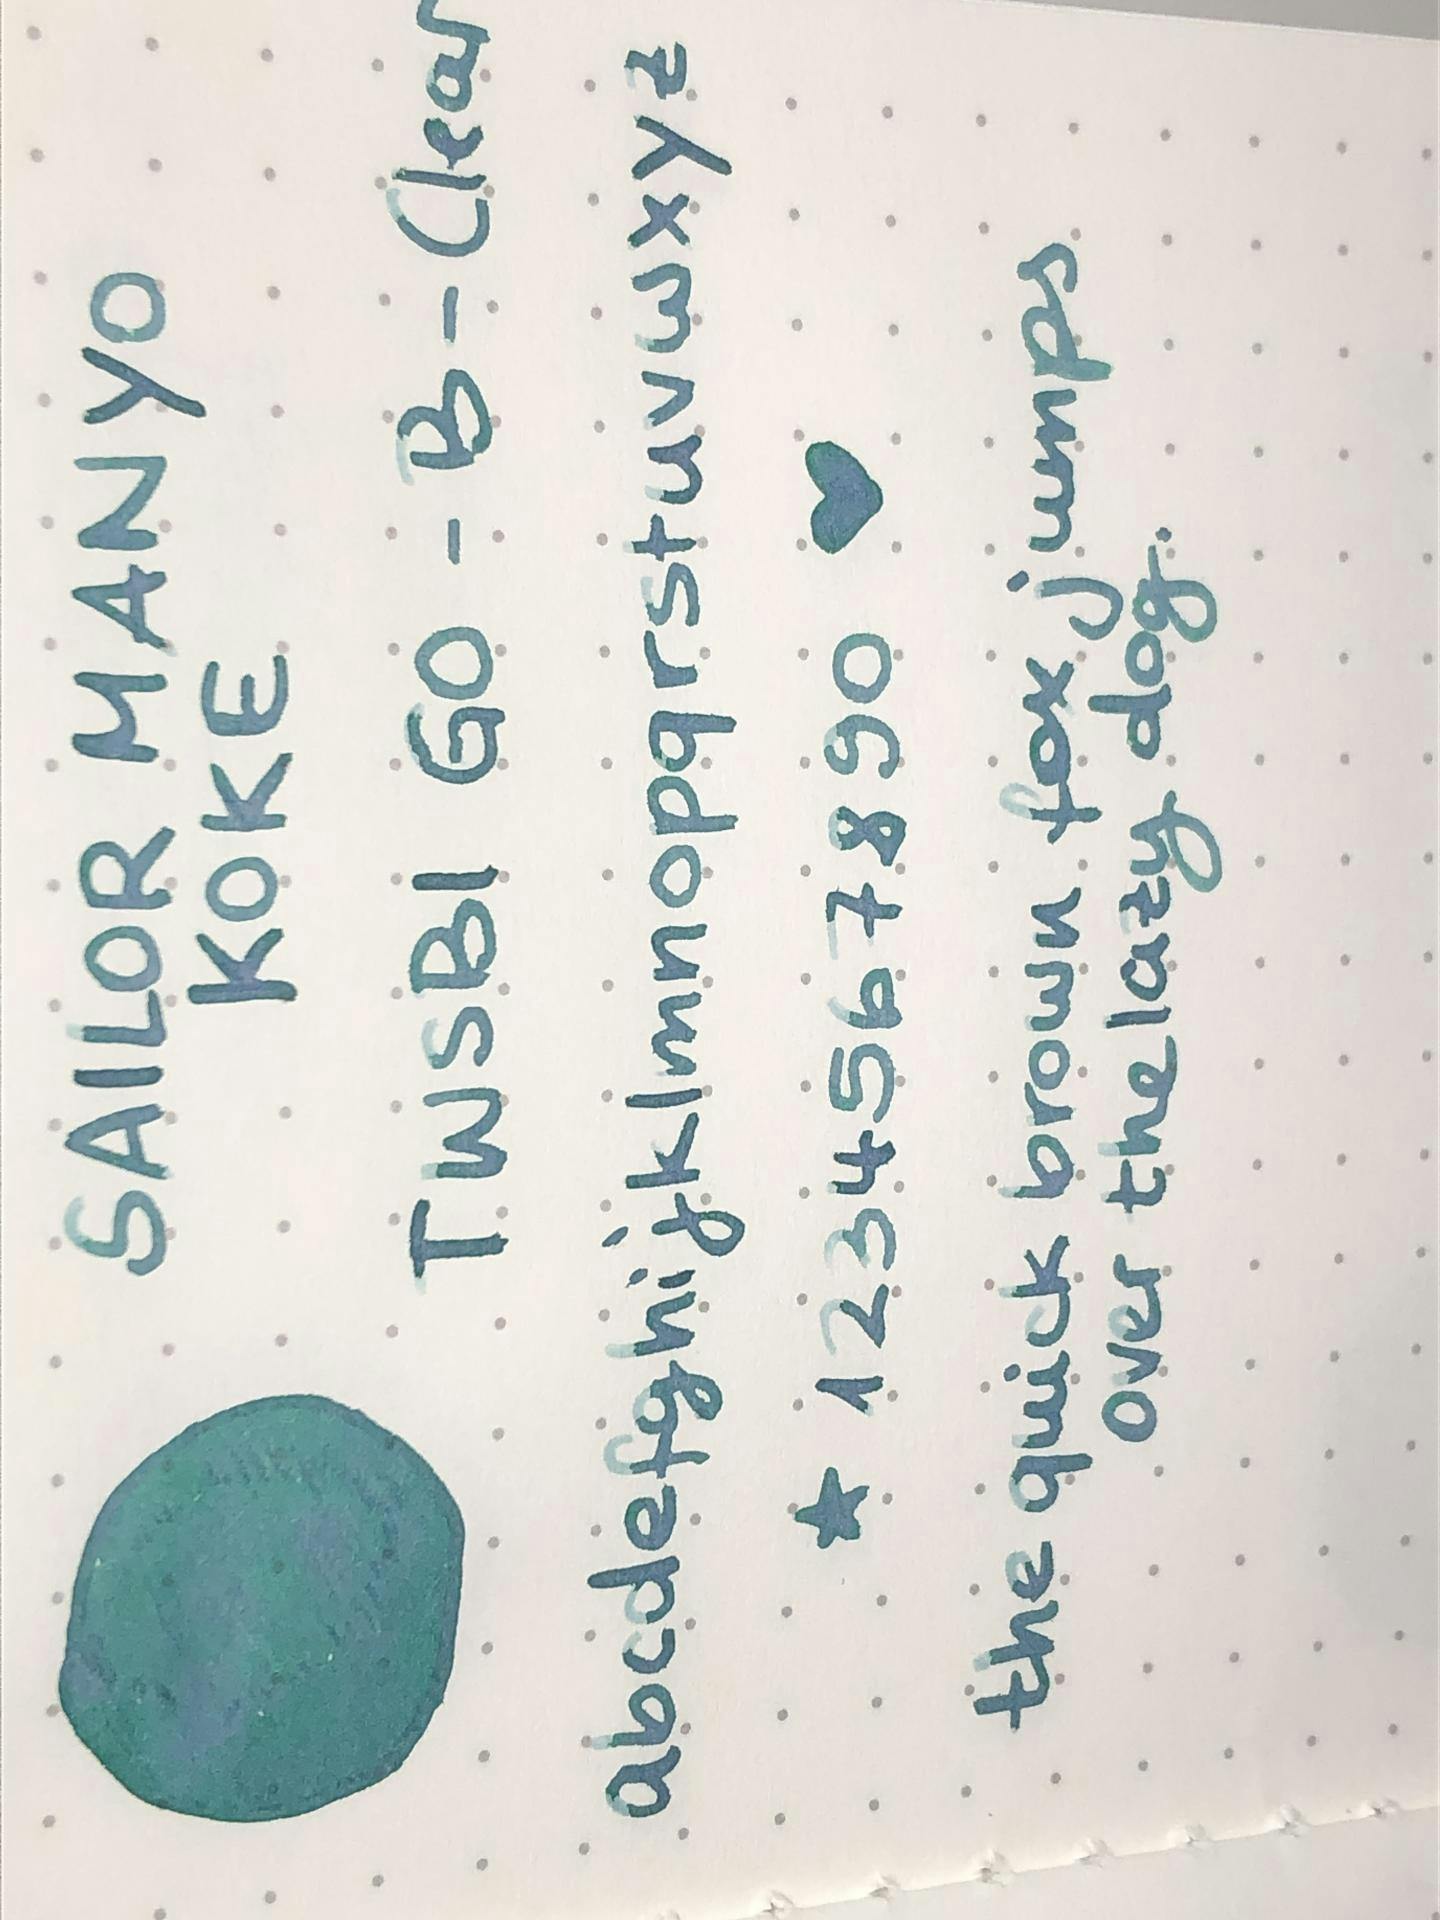 SAILOR MANYO
KOKE
TWSBI GO - B - Clear
abcdefghijklmnopqrstuvwxyz
★ 1234567890 ♥
the quick brown fox jumps
over the lazy dog.